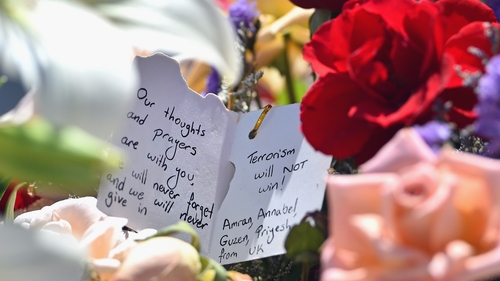 Our thoughts
and prayers
are with you,
we will never forget
and we will never
give in
Terrorism
will NOT
win!
Amran, Annabel
Guzen, Priyesh
from UK